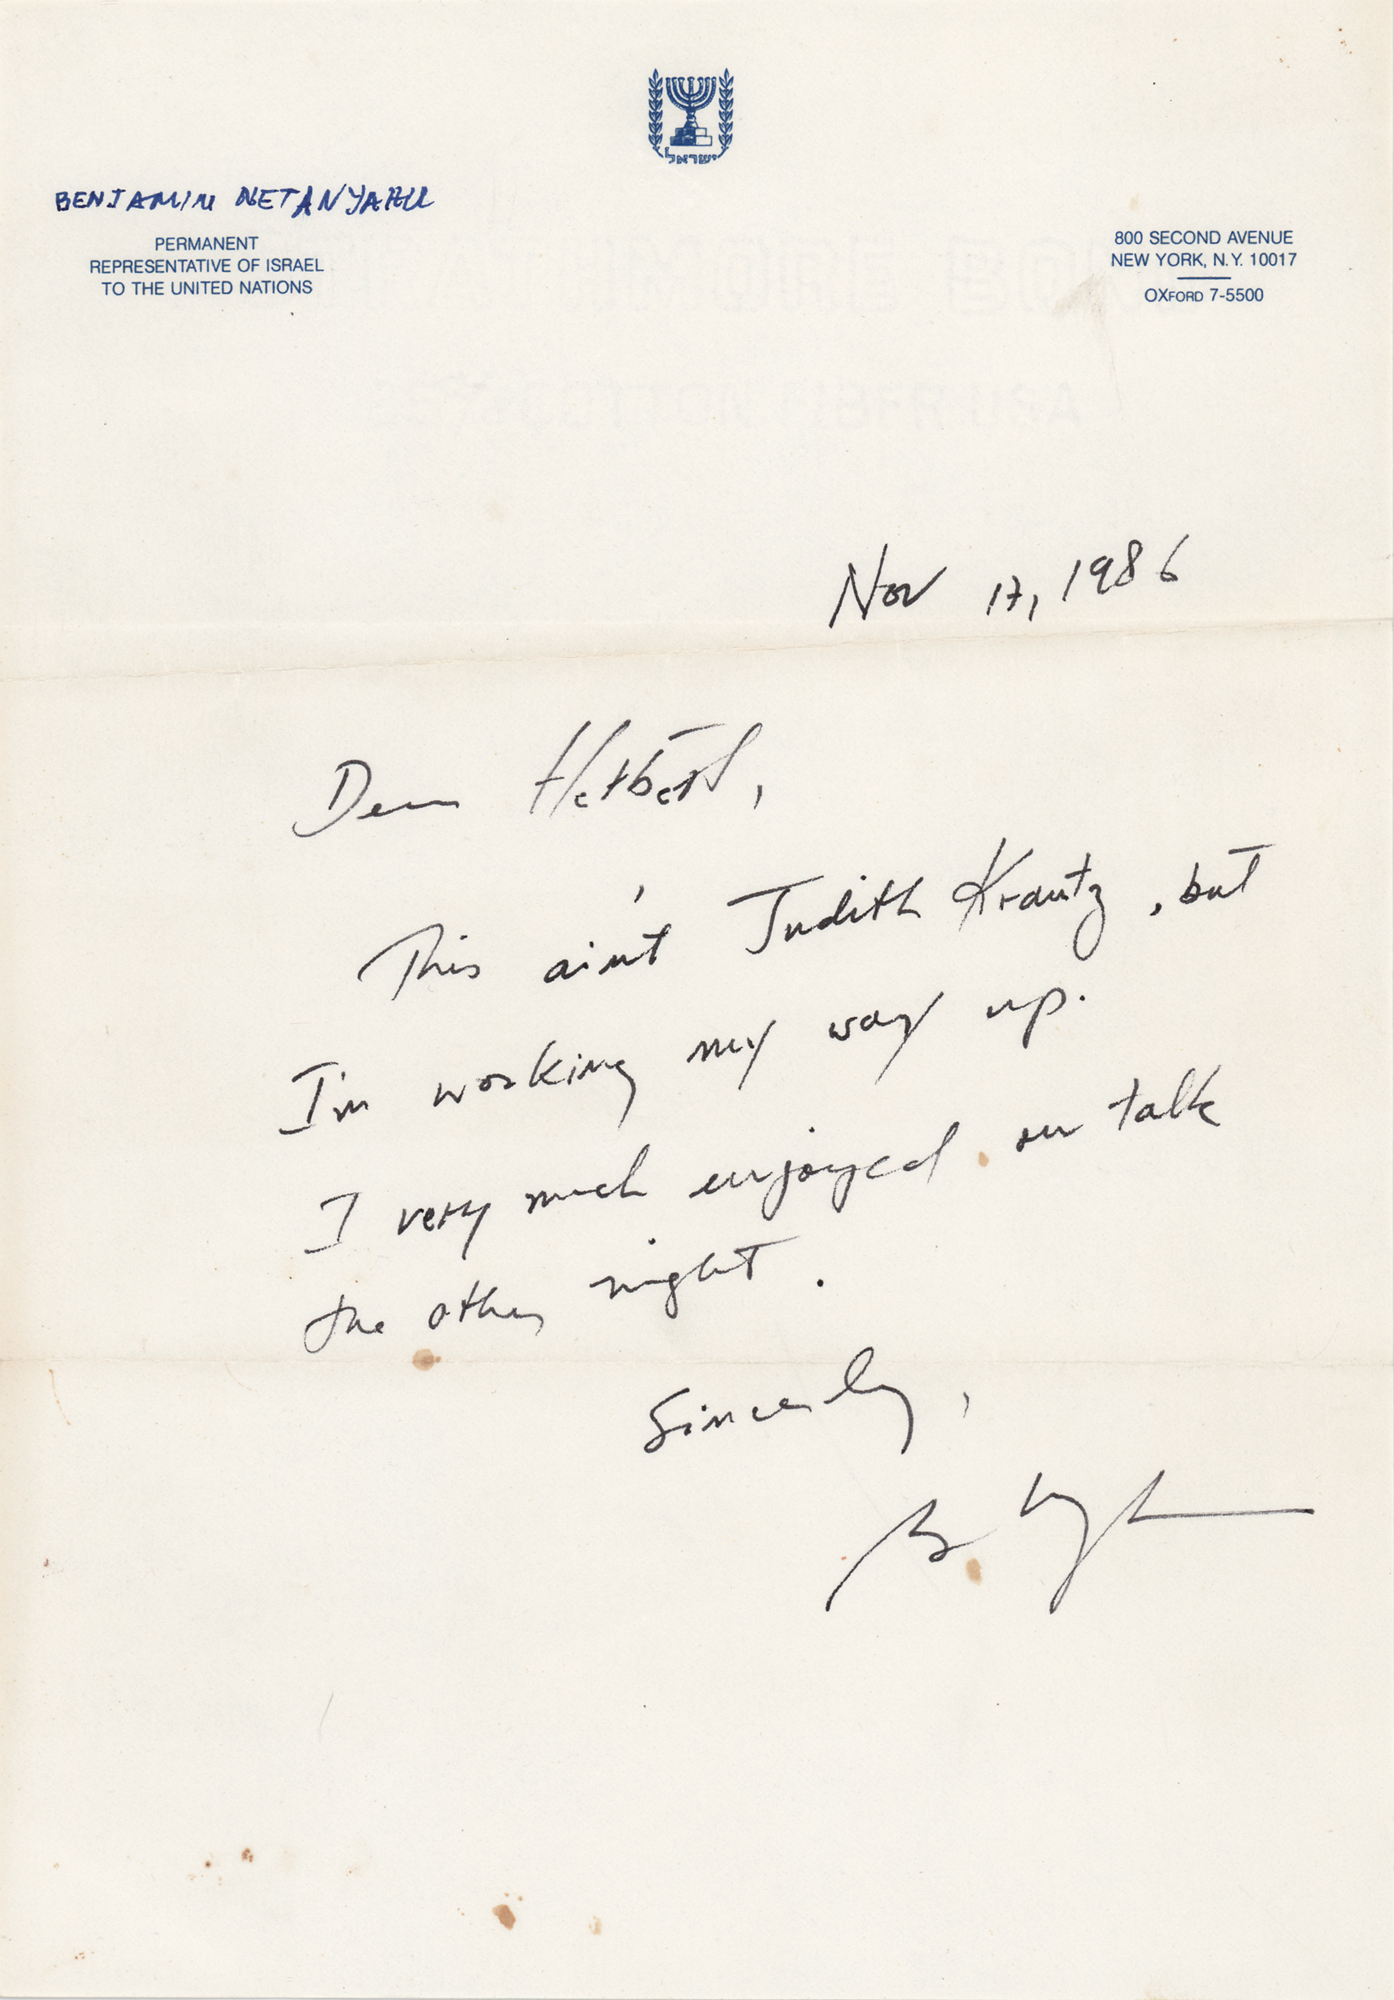 ישראל
BENJAMIN NETANYAHU
PERMANENT
REPRESENTATIVE OF ISRAEL
TO THE UNITED NATIONS
800 SECOND AVENUE
NEW YORK, N.Y. 10017
OXFORD 7-5500
Nov 17, 1986
Dear Herbert,
This ain't Judith Krantz, but
I'm working my way up.
I very much enjoyed our talk
the other night.
Sincerely,